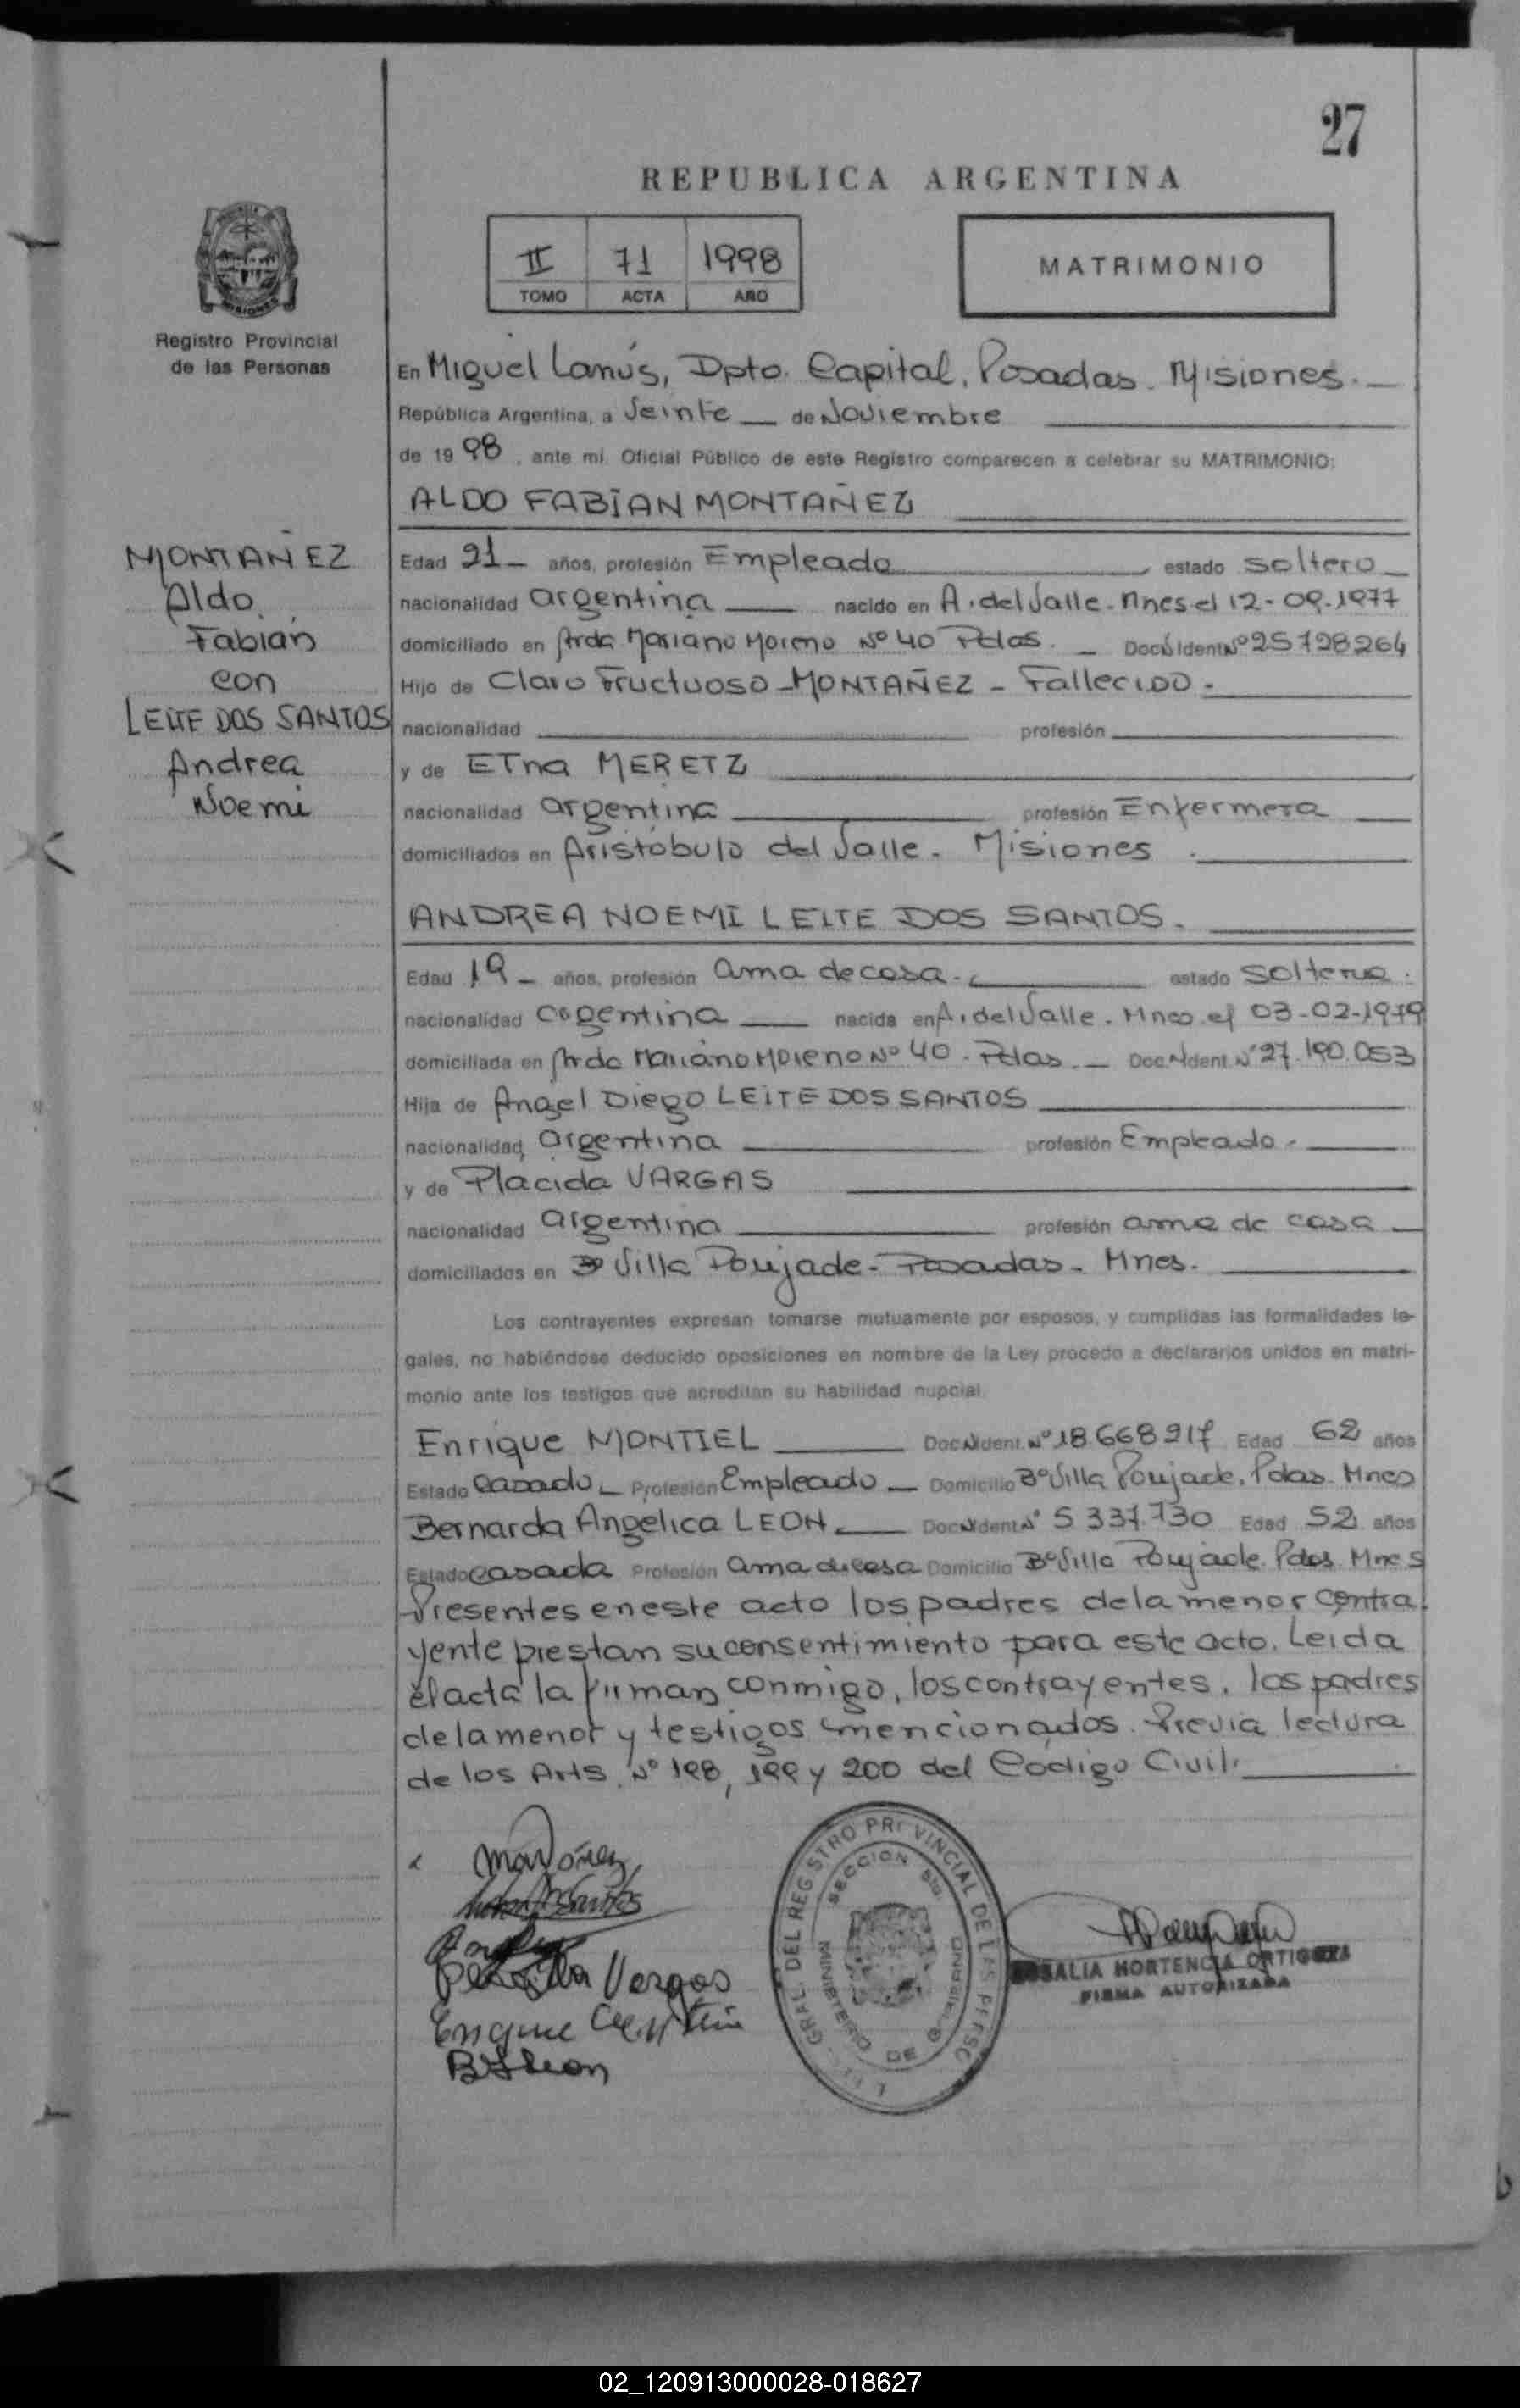 27
REPUBLICA ARGENTINA
II 71 1998
TOMO ACTA AÑO
MATRIMONIO
Registro Provincial
de las Personas
En Miguel Lanús, Dpto. Capital, Posadas. Misiones.
República Argentina, a Veinte de Noviembre
de 1998, ante mí Oficial Público de este Registro comparecen a celebrar su MATRIMONIO:
ALDO FABIAN MONTAÑEZ
MONTAÑEZ
Aldo
Fabián
con
LEITE DOS SANTOS
Andrea
Noemi
Edad 21 años, profesión Empleado estado soltero
nacionalidad argentina nacido en A. del Valle. Mnes el 12-09-1977
domiciliado en Mariano Moreno Nº 40 Pdas. Doc. Ident. Nº 25728264
Hijo de Claro Fructuoso MONTAÑEZ - Fallecido -
nacionalidad profesión
y de ETna MERETZ
nacionalidad argentina profesión Enfermera
domiciliados en Aristóbulo del Valle. Misiones.
ANDREA NOEMI LEITE DOS SANTOS.
Edad 19 años, profesión ama de casa. estado soltera.
nacionalidad argentina nacida en A. del Valle. Mnes. el 03-02-1979
domiciliada en Mariano Moreno Nº 40. Pdas. Doc. Ident. Nº 27.190.053
Hija de Angel Diego LEITE DOS SANTOS
nacionalidad argentina profesión Empleado.
y de Placida VARGAS
nacionalidad argentina profesión ama de casa
domiciliados en Bº Villa Poujade - Posadas - Mnes.
Los contrayentes expresan tomarse mutuamente por esposos, y cumplidas las formalidades le-
gales, no habiéndose deducido oposiciones en nombre de la Ley procedo a declararlos unidos en matri-
monio ante los testigos que acreditan su habilidad nupcial.
Enrique MONTIEL Doc. Ident. Nº 18.668917 Edad 62 años
Estado Casado Profesión Empleado Domicilio Bº Villa Poujade. Pdas. Mnes
Bernarda Angelica LEON Doc. Ident. Nº 5 337.730 Edad 52 años
Estado casada Profesión ama de casa Domicilio Bº Villa Poujade. Pdas. Mnes
Presentes en este acto los padres de la menor contra
yente prestan su consentimiento para este acto. Leida
el acta la firman conmigo, los contrayentes, los padres
de la menor y testigos mencionados. Previa lectura
de los Arts. Nº 198, 199 y 200 del Codigo Civil.
Vargas
Enrique
B A Leon
GRAL. DEL REGISTRO PROVINCIAL DE LAS PERSO
SECCION
MINISTERIO DE GOBIERNO
ROSALIA HORTENCIA ORTIGOZA
FIRMA AUTORIZADA
02_120913000028-018627